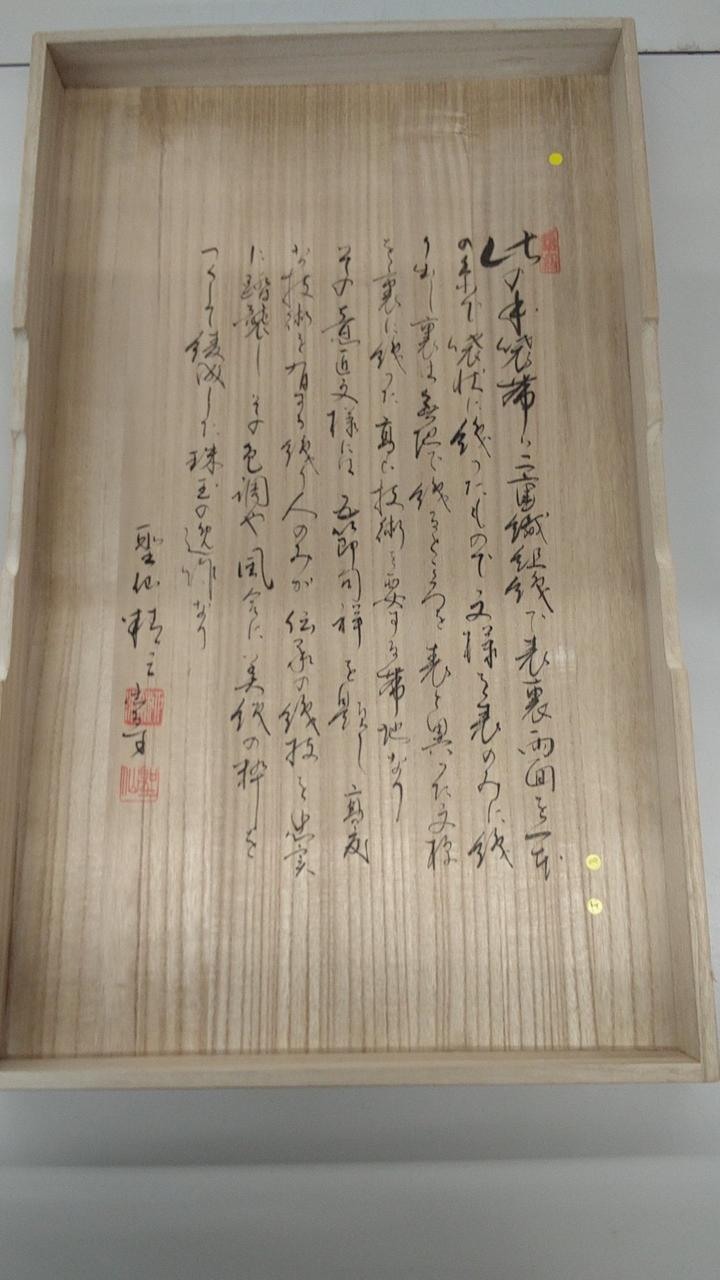 此の本袋帯は二重織組織で表裏両面を一本
の糸で袋状に織ったもので文様を表のみに織
り出し裏は無地で織るところを表と異った文様
を裏に織った高い技術を要する帯地なり
その意匠文様には五節句祥を題し高度
な技術を有する織り人のみが伝承の織技を忠実
に踏襲しその色調や風合に美織の粋を
つくして織成した珠玉の逸作なり
聖仙 精之